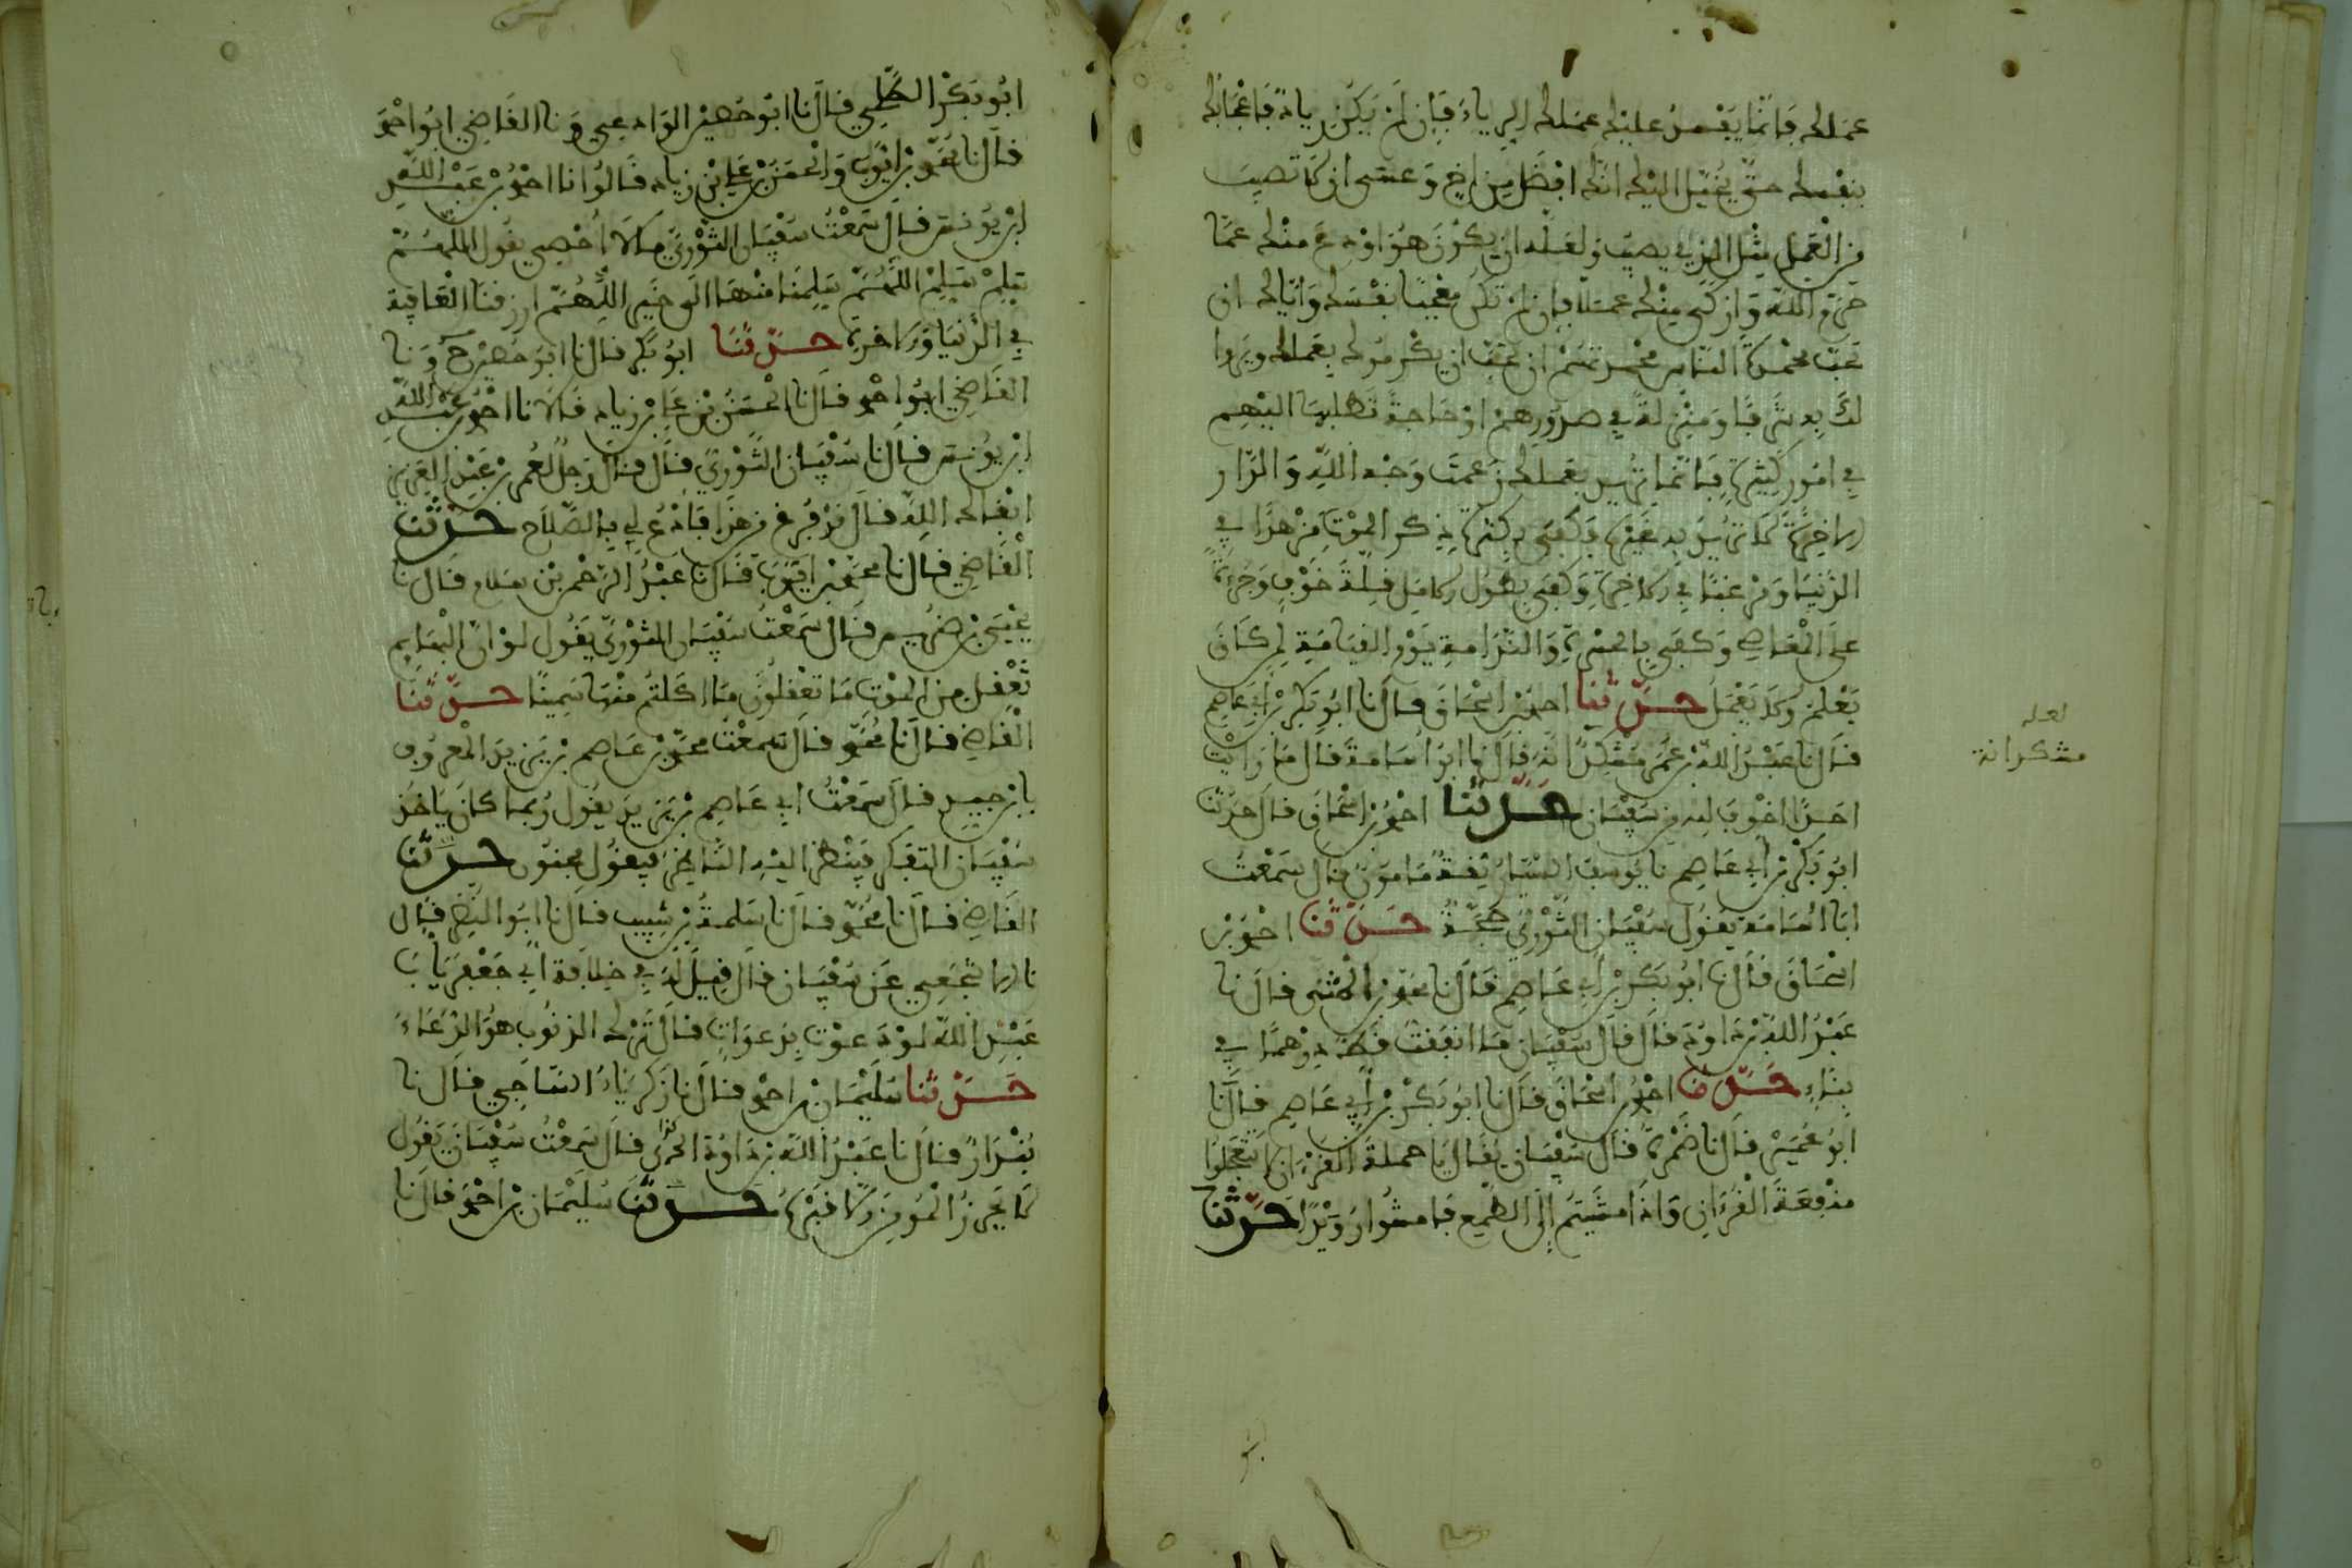 عملك فإنما يفسد عليك عملك الرياء فإن لم يكن رياء فإعجابك
بنفسك حتى يخيل إليك أنك أفضل من أخ وعسى أن لا تصيب
من العمل مثل الذي يصيب ولعله أن يكون هو أورع منك عما
حرم الله وأزكى منك عملا فإن لم تكن معجبا بنفسك وإياك أن
تحب محمدة الناس محمدتهم أن تحب أن يكرموك بعملك ويروا
لك به شرفا ومنزلة في صدورهم أو حاجة تطلبها إليهم
في أمور كثيرة فإنما تريد بعملك زعمت وجه الله والدار
الآخرة لا تريد به غيره فكفى بكثرة ذكر الموت مزهدا في
الدنيا ومرغبا في الآخرة وكفى بطول الأمل قلة خوف وجرءة
على المعاصي وكفى بالحسرة والندامة يوم القيامة لمن كان
يعلم ولا يعمل حدثنا أحمد بن إسحاق قال نا أبو بكر بن أبي عاصم
قال نا عبد الله بن عمر مشكدانه قال نا أبو أسامة قال ما رأيت
أحدا أخوف لله من سفيان حدثنا أحمد بن إسحاق قال حدثنا
أبو بكر بن أبي عاصم نا يوسف الستار ثقة مأمون قال سمعت
أبا أسامة يقول سفيان الثوري حجة حدثنا أحمد بن
إسحاق قال نا أبو بكر بن أبي عاصم قال نا محمد بن المثنى قال نا
عبد الله بن داود قال قال سفيان ما أنفقت قط درهما في
بناء حدثنا أحمد بن إسحاق قال نا أبو بكر بن أبي عاصم قال نا
أبو عمير قال نا ضمرة قال سفيان يقال يا حملة القرءان لا تتعجلوا
منفعة القرءان وإذا مشيتم إلى الطمع فامشوا رويدا حدثنا
لعله
مشكدانة
أبو بكر الطلحي قال نا أبو حصين الوادعي ونا القاضي أبو أحمد
قال نا محمد بن أيوب والحسن بن علي بن زياد قالوا نا أحمد بن عبد الله
ابن يونس قال سمعت سفيان الثوري ما لا أحصي يقول اللهم
سلم سلم اللهم سلمنا منها إلى خير اللهم ارزقنا العافية
في الدنيا والآخرة حدثنا أبو بكر قال نا أبو حصين ح ونا
القاضي أبو أحمد قال نا الحسن بن علي بن زياد قالا نا أحمد بن عبد الله
ابن يونس قال نا سفيان الثوري قال قال رجل لعمر بن عبد العزيز
أبقاك الله قال قد فرغ من هذا فادع لي بالصلاح حدثنا
القاضي قال نا محمد بن أيوب قال نا عبد الرحمن بن سلام قال نا
عيسى بن يونس قال سمعت سفيان الثوري يقول لو أن البهايم
تعقل من الموت ما تعقلون ما أكلتم منها سمينا حدثنا
القاضي قال نا محمد قال سمعت محمد بن عاصم بن يزيد المعروف
بابن جبر قال سمعت أبي عاصم بن يزيد يقول ربما كان يأخذ
سفيان التفكر فينظر إليه الناظر فيقول مجنون حدثنا
القاضي قال نا محمد قال نا سلمة بن شبيب قال نا أبو النضر قال
نا الأشجعي عن سفيان قال قيل له في خلافة أبي جعفر يابا
عبد الله لو دعوت بدعوات قال ترك الذنوب هو الدعاء
حدثنا سليمان بن أحمد قال نا زكرياء الساجي قال نا
بندار قال نا عبد الله بن داود الخريبي قال سمعت سفيان يقول
لا يحرز المومن إلا قبره حدثنا سليمان بن أحمد قال نا